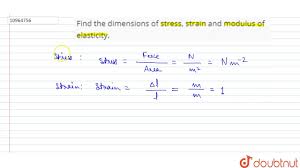 10964756
Find the dimensions of stress, strain and modulus of
elasticity.
Stress : Stress = Force / Area = N / m² = N m⁻²
Strain : Strain = Δl / l = m / m = 1
doubtnut